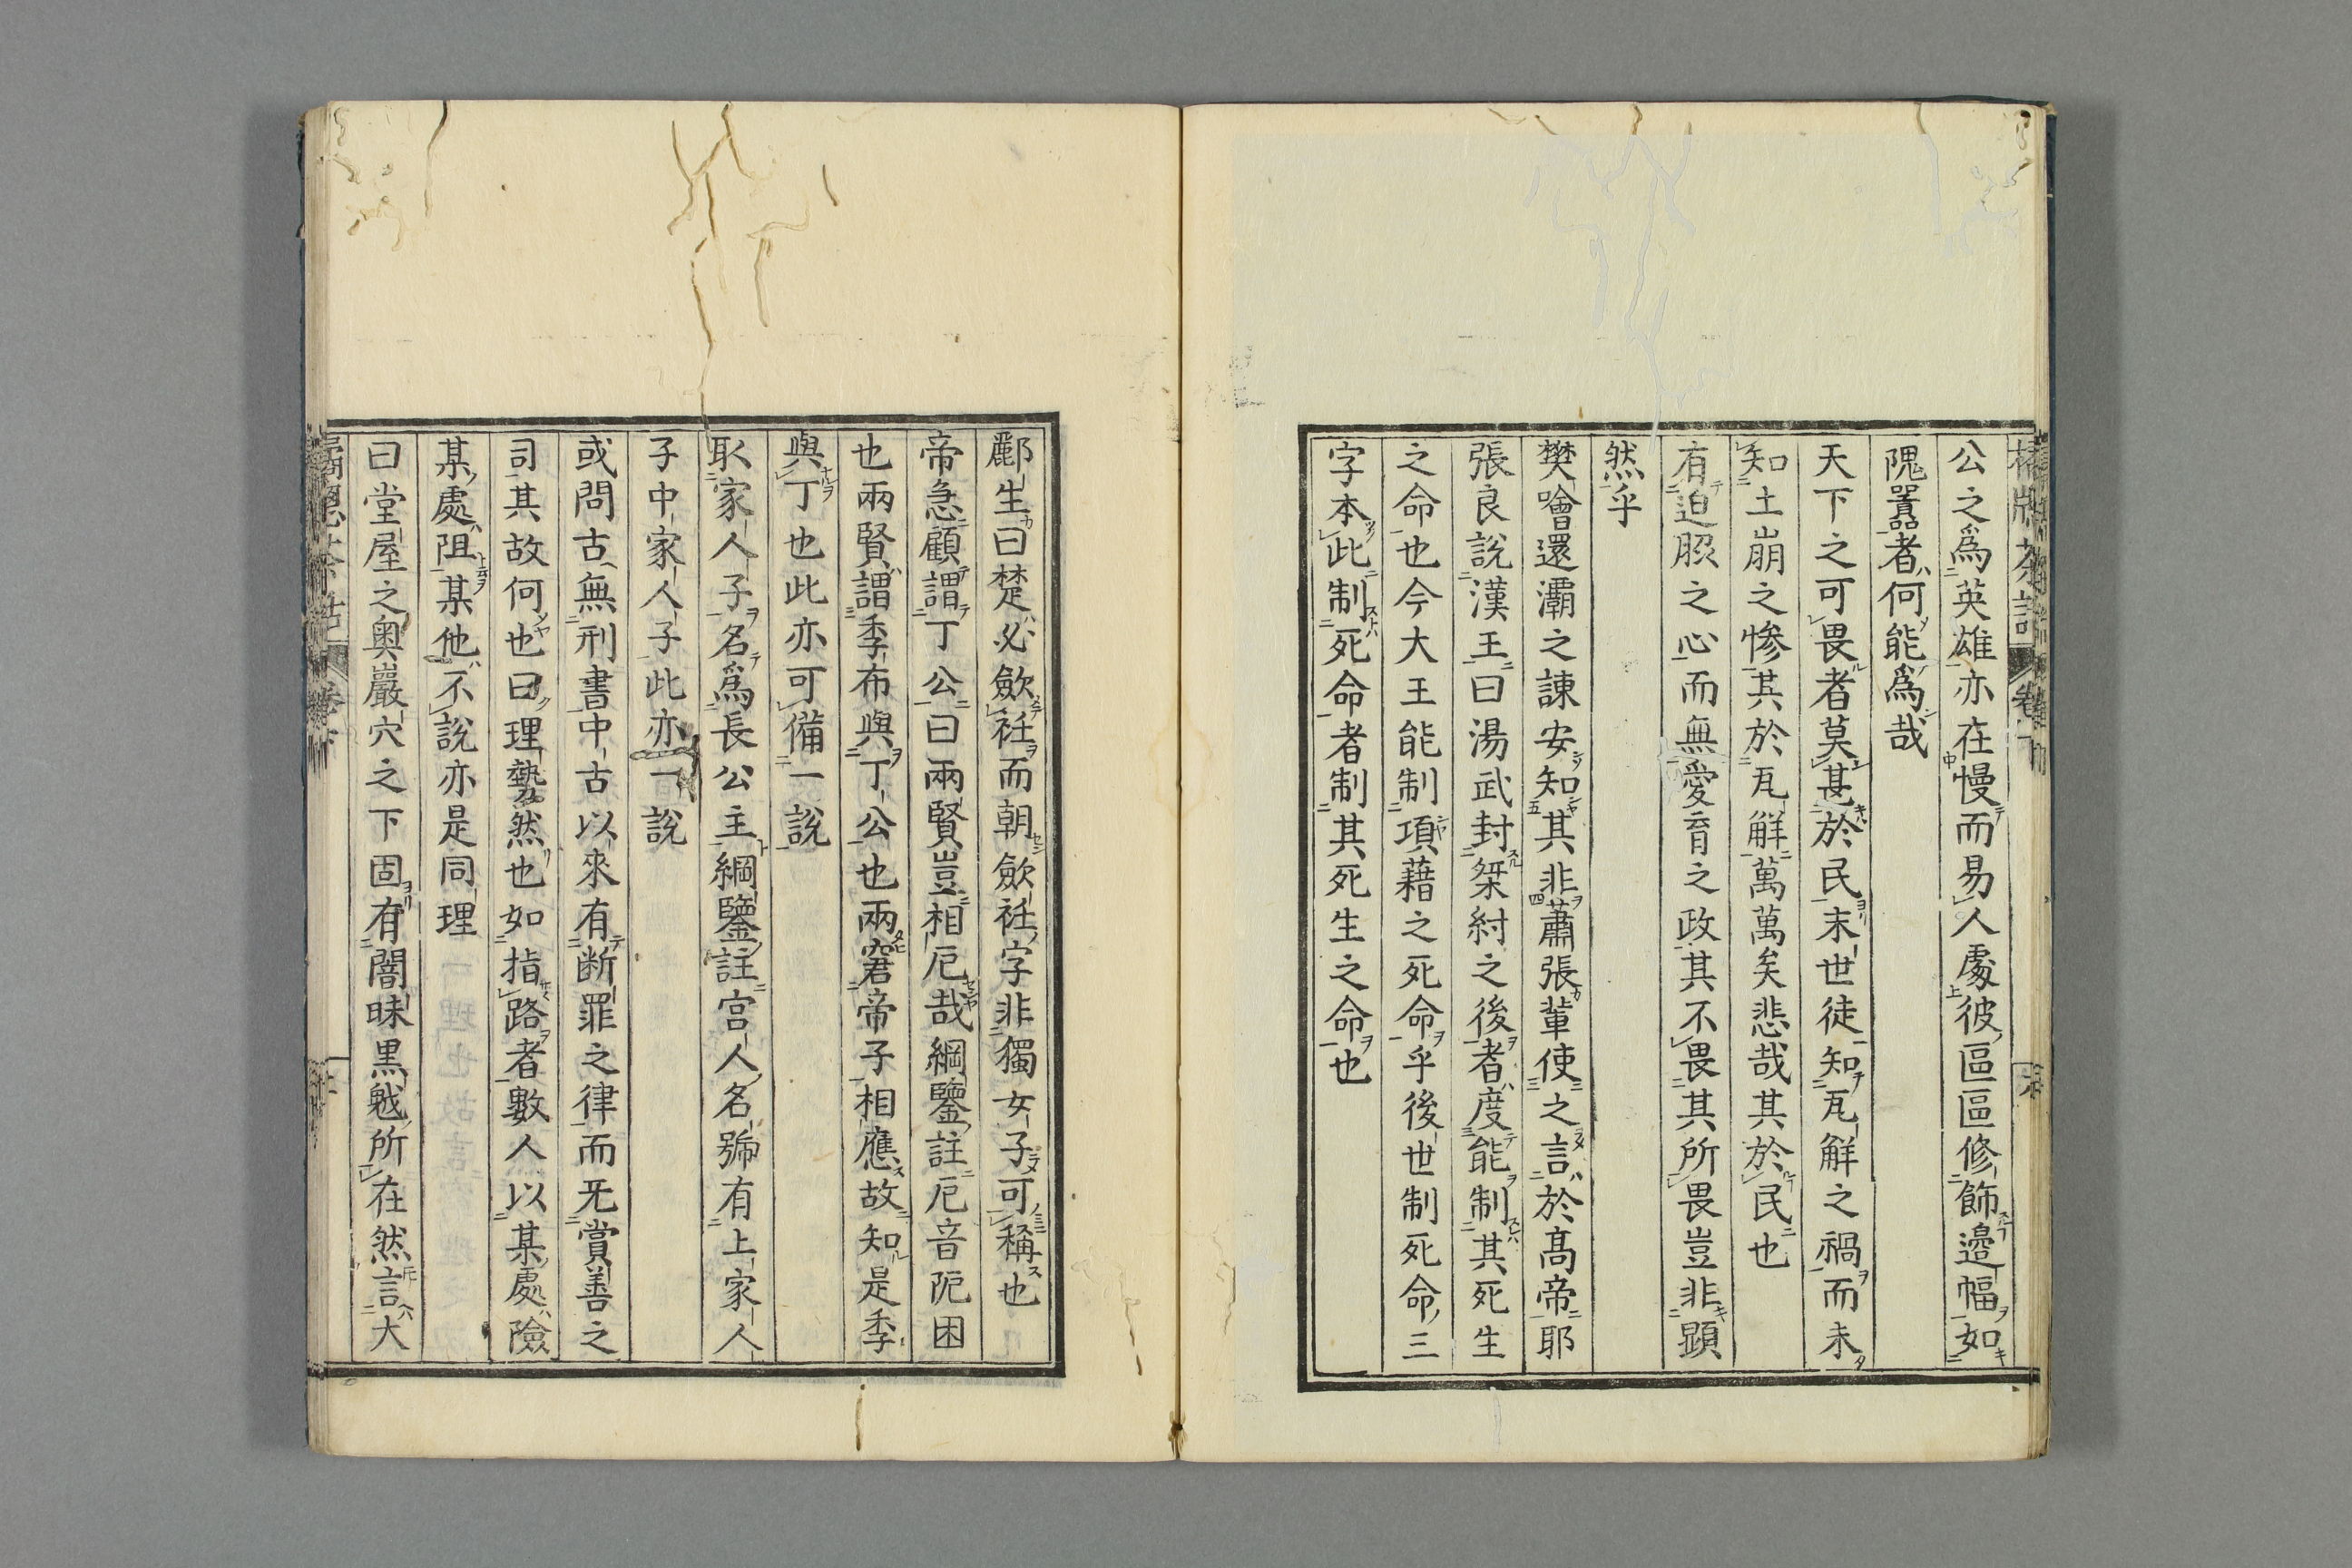 公之爲英雄亦在慢而易人處彼區區修飾邉幅如
隗囂者何能爲哉
天下之可畏者莫甚於民末世徒知瓦解之禍而未
知土崩之惨其於瓦解萬萬矣悲哉其於民也
有迫脤之心而無愛育之政其不畏其所畏豈非顕
然乎
樊噲還灞之諌安知其非蕭張輩使之言於髙帝耶
張良說漢王曰湯武封桀紂之後者度能制其死生
之命也今大王能制項藉之死命乎後世制死命三
字本此制死命者制其死生之命也
酈生曰楚必歛衽而朝歛衽字非獨女子可稱也
帝急顧謂丁公曰兩賢豈相厄哉綱鑒註厄音阨困
也兩賢謂季布與丁公也兩窘帝子相應故知是季
與丁也此亦可備一說
取家人子名爲長公主綱鑒註宫人名號有上家人
子中家人子此亦一說
或問古無刑書中古以來有断罪之律而旡賞善之
司其故何也曰理㔟然也如指路者數人以某處險
某處阻某他不說亦是同理
曰堂屋之奥巖穴之下固有闇昧黒魆所在然言大